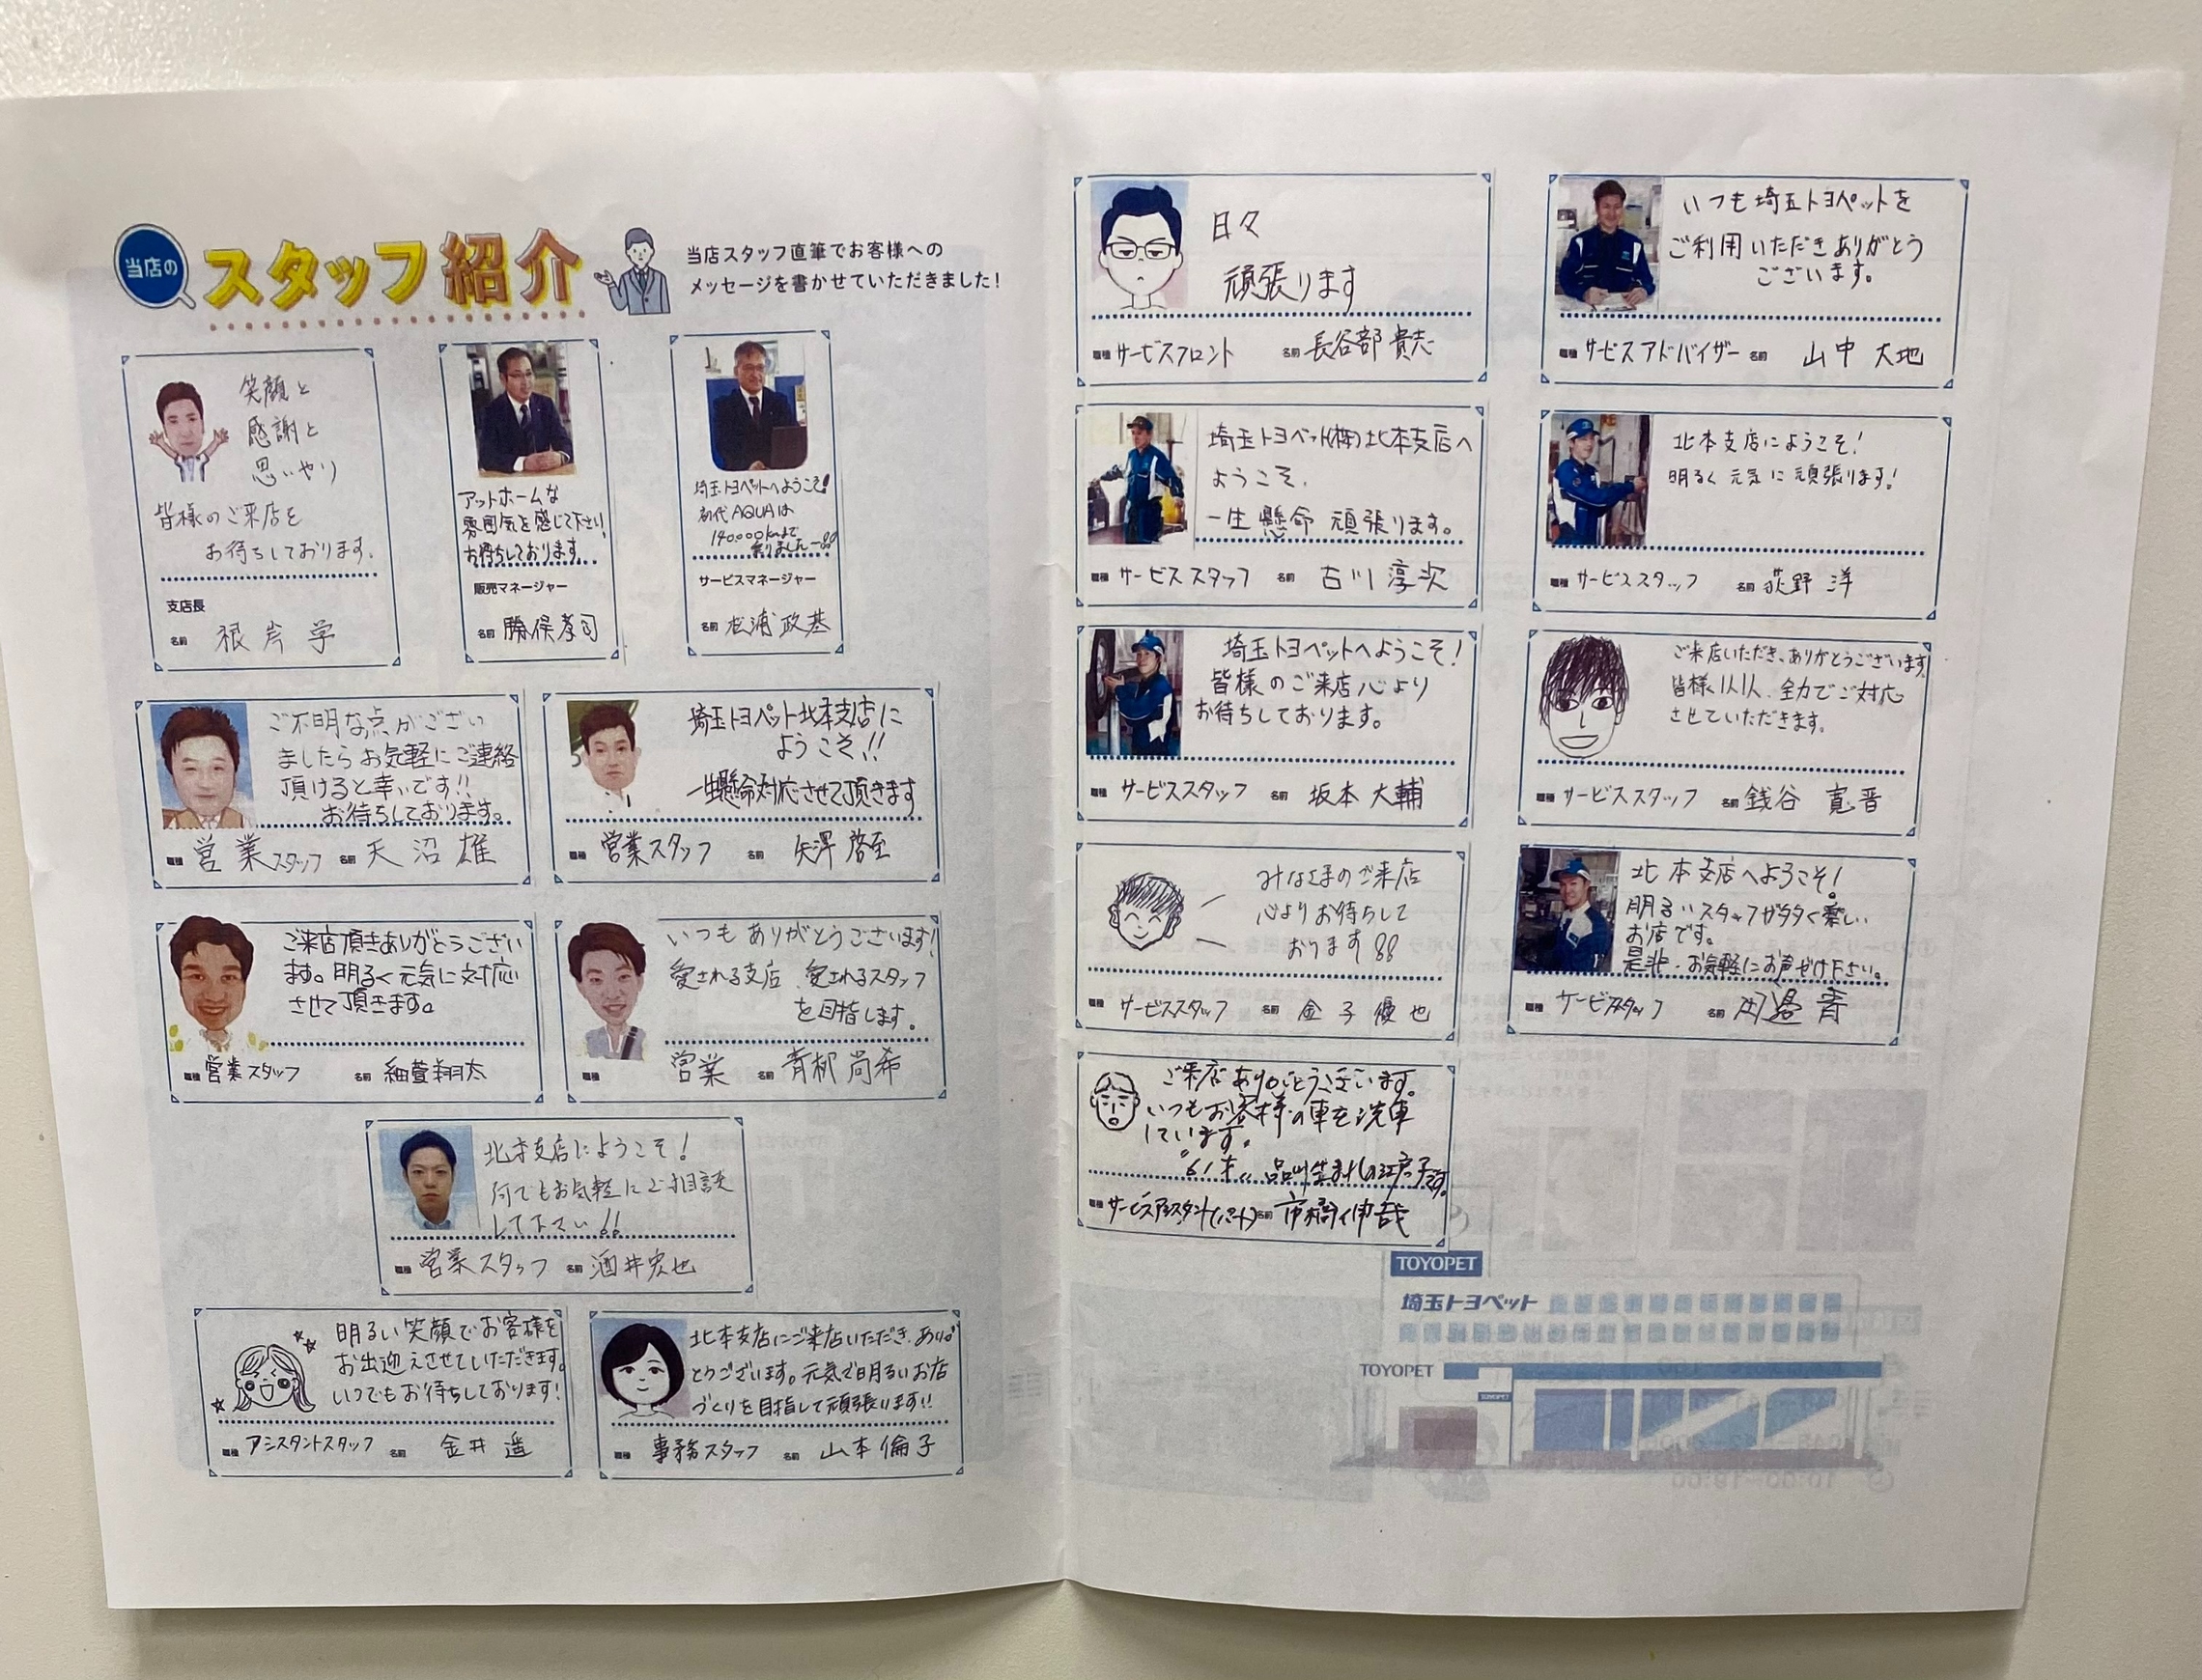 当店の
スタッフ紹介
当店スタッフ直筆でお客様への
メッセージを書かせていただきました!
笑顔と
感謝と
思いやり
皆様のご来店を
お待ちしております.
支店長
名前 根岸 学
アットホームな
雰囲気を感じて下さい!
お待ちしております.
販売マネージャー
名前 勝俣孝司
埼玉トヨペットへようこそ!
初代AQUAは
140,000kmまで
乗りました
サービスマネージャー
名前 松浦政基
ご不明な点がござい
ましたらお気軽にご連絡
頂けると幸いです!!
お待ちしております。
職種 営業スタッフ 名前 天沼 雄
埼玉トヨペット北本支店に
ようこそ!!
一生懸命対応させて頂きます
職種 営業スタッフ 名前 矢澤
ご来店頂きありがとうござい
ます。明るく元気に対応
させて頂きます。
職種 営業スタッフ 名前 細萱翔太
いつもありがとうございます!
愛される支店、愛されるスタッフ
を目指します。
職種 営業 名前 青柳尚希
北本支店にようこそ!
何でもお気軽にご相談
して下さい!!
職種 営業スタッフ 名前 酒井宏也
明るい笑顔でお客様を
お出迎えさせていただきます。
いつでもお待ちしております!
職種 アシスタントスタッフ 名前 金井 遥
北本支店にご来店いただき、ありが
とうございます。元気で明るいお店
づくりを目指して頑張ります!!
職種 事務スタッフ 名前 山本倫子
日々
頑張ります
職種 サービスフロント 名前 長谷部貴志
いつも埼玉トヨペットを
ご利用いただきありがとう
ございます。
職種 サービスアドバイザー 名前 山中 大地
埼玉トヨペット(株)北本支店へ
ようこそ.
一生懸命 頑張ります。
職種 サービススタッフ 名前 古川淳次
北本支店にようこそ!
明るく元気に頑張ります!
職種 サービススタッフ 名前 荻野 洋
埼玉トヨペットへようこそ!
皆様のご来店心より
お待ちしております。
職種 サービススタッフ 名前 坂本大輔
ご来店いただき、ありがとうございます
皆様1人1人、全力でご対応
させていただきます。
職種 サービススタッフ 名前 銭谷 寛晋
みなさまのご来店
心よりお待ちして
おります!!
職種 サービススタッフ 名前 金子優也
北本支店へようこそ!
明るいスタッフが多く楽しい
お店です。
是非、お気軽にお声がけ下さい。
職種 サービススタッフ 名前
ご来店ありがとうございます。
いつもお客様の車を洗車
しています。
61才 品川生まれの江戸っ子です。
職種 サービスアシスタント(パート) 名前 市橋伸哉
TOYOPET
埼玉トヨペット
TOYOPET
TOYOPET